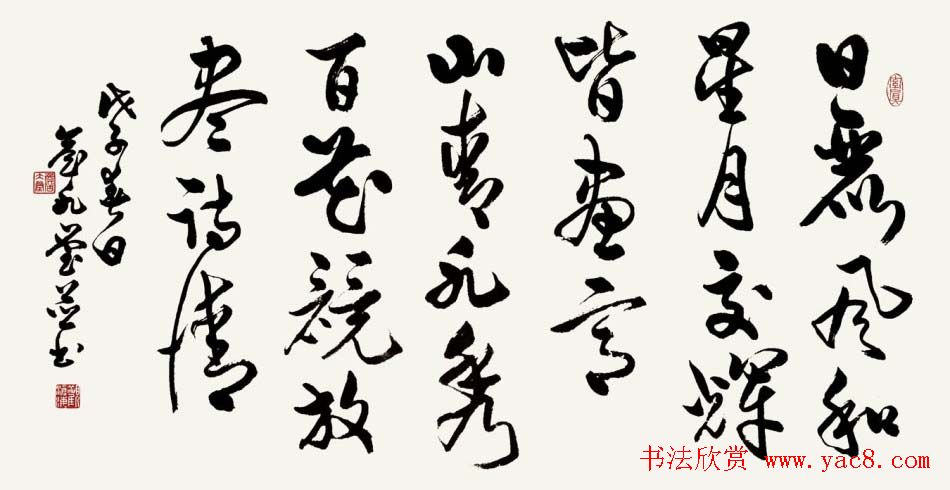 日麗風和
星月交輝
皆畫意
山青水秀
百花競放
盡詩情
戊子春日
书法欣赏 www.yac8.com